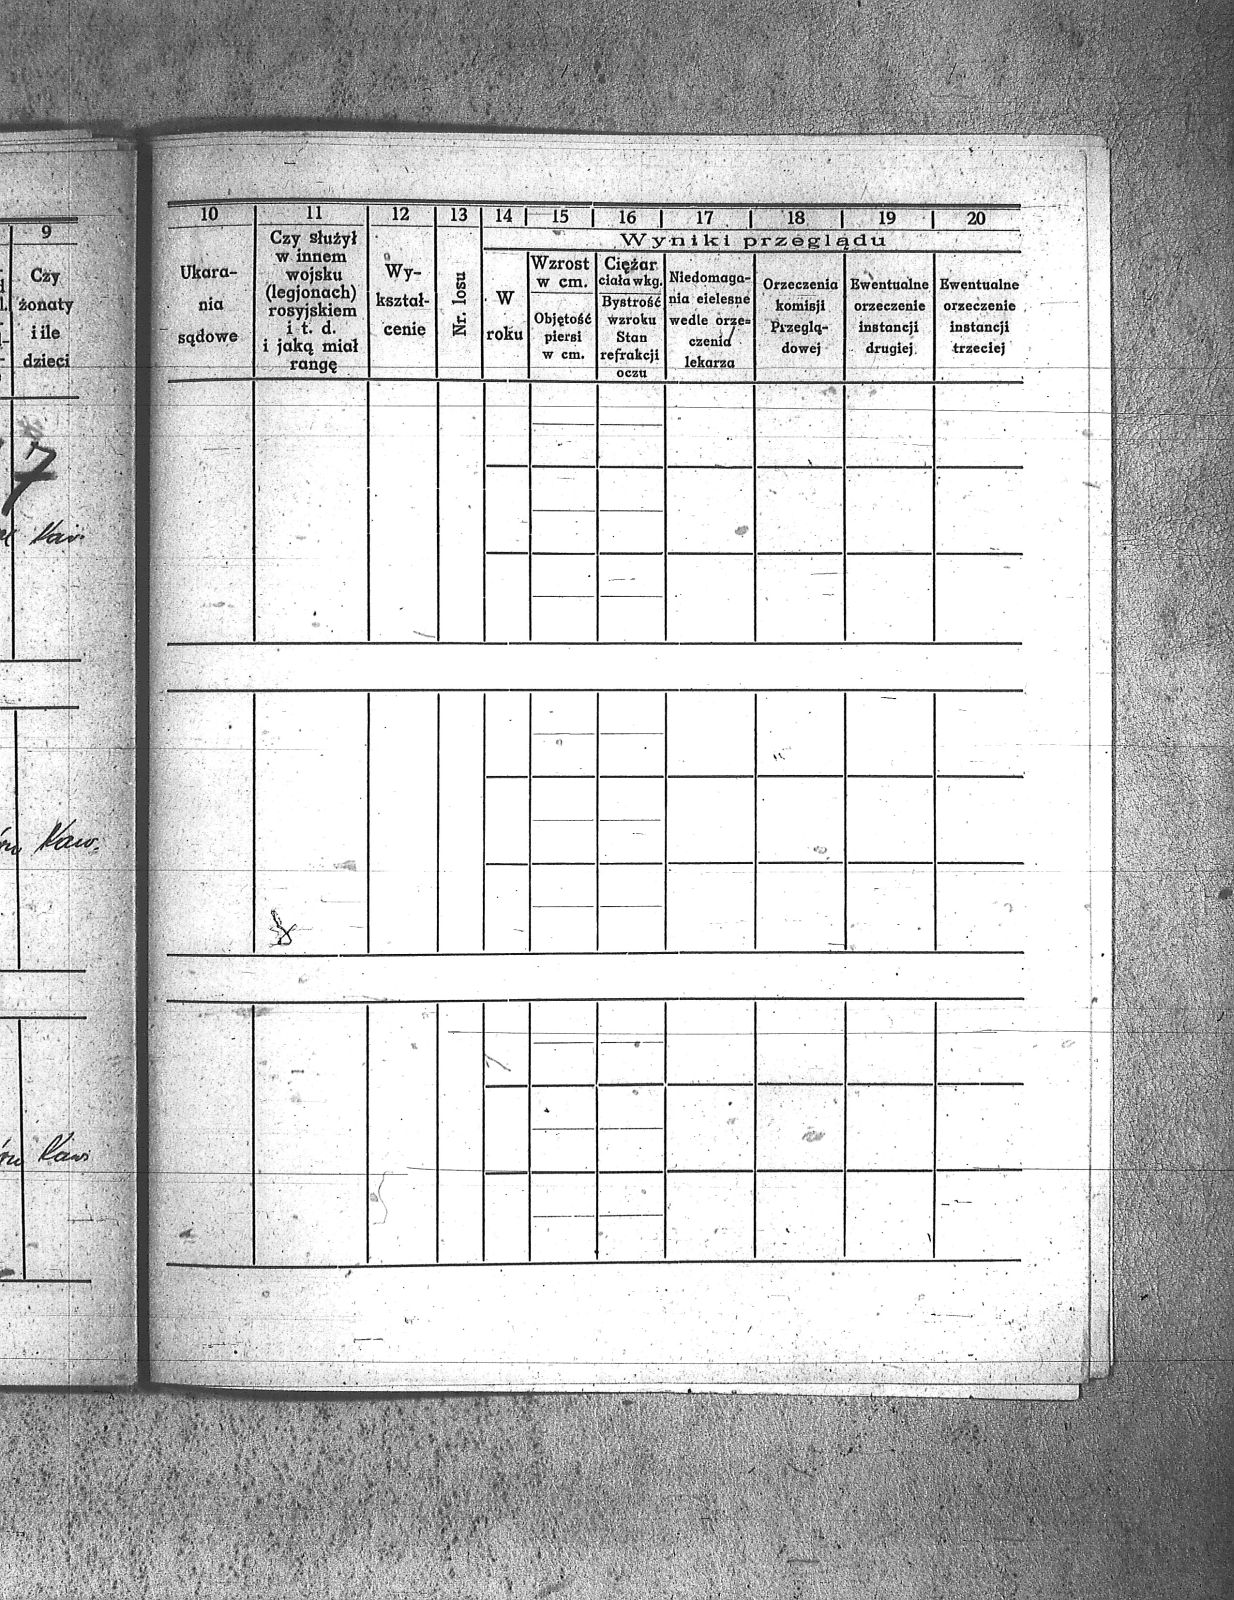 9
Czy
żonaty
i ile
dzieci
7
Kaw.
Kaw.
Kaw.
10
Ukara-
nia
sądowe
11
Czy służył
w innem
wojsku
(legjonach)
rosyjskiem
i t. d.
i jaką miał
rangę
12
Wy-
kształ-
cenie
13
Nr. losu
14 15 16 17 18 19 20
Wyniki przeglądu
W
roku
Wzrost
w cm.
Objętość
piersi
w cm.
Ciężar
ciała w kg.
Bystrość
wzroku
Stan
refrakcji
oczu
Niedomaga-
nia cielesne
wedle orze=
czenia
lekarza
Orzeczenia
komisji
Przeglą-
dowej
Ewentualne
orzeczenie
instancji
drugiej
Ewentualne
orzeczenie
instancji
trzeciej